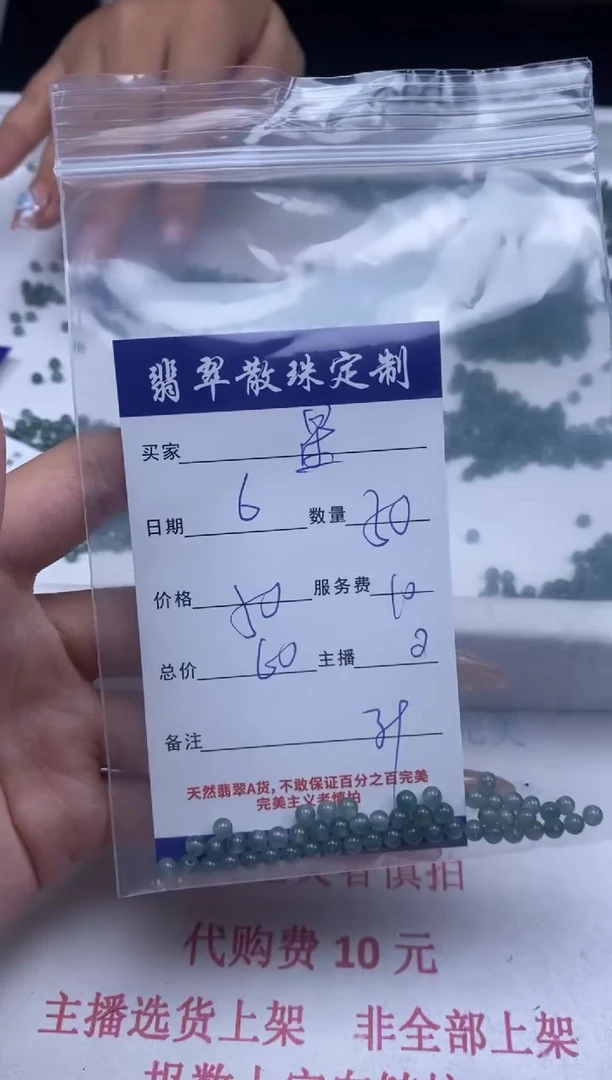 翡翠散珠定制
买家 星
日期 6 数量 80
价格 50 服务费 10
总价 60 主播 2
备注
天然翡翠A货，不敢保证百分之百完美
完美主义者慎拍
者慎拍
代购费 10 元
主播选货上架 非全部上架